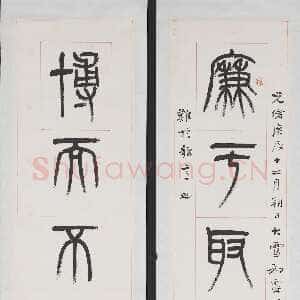 光緒庚辰十二月朔日大雪初
廉于取
博而不
Shufawang.CN